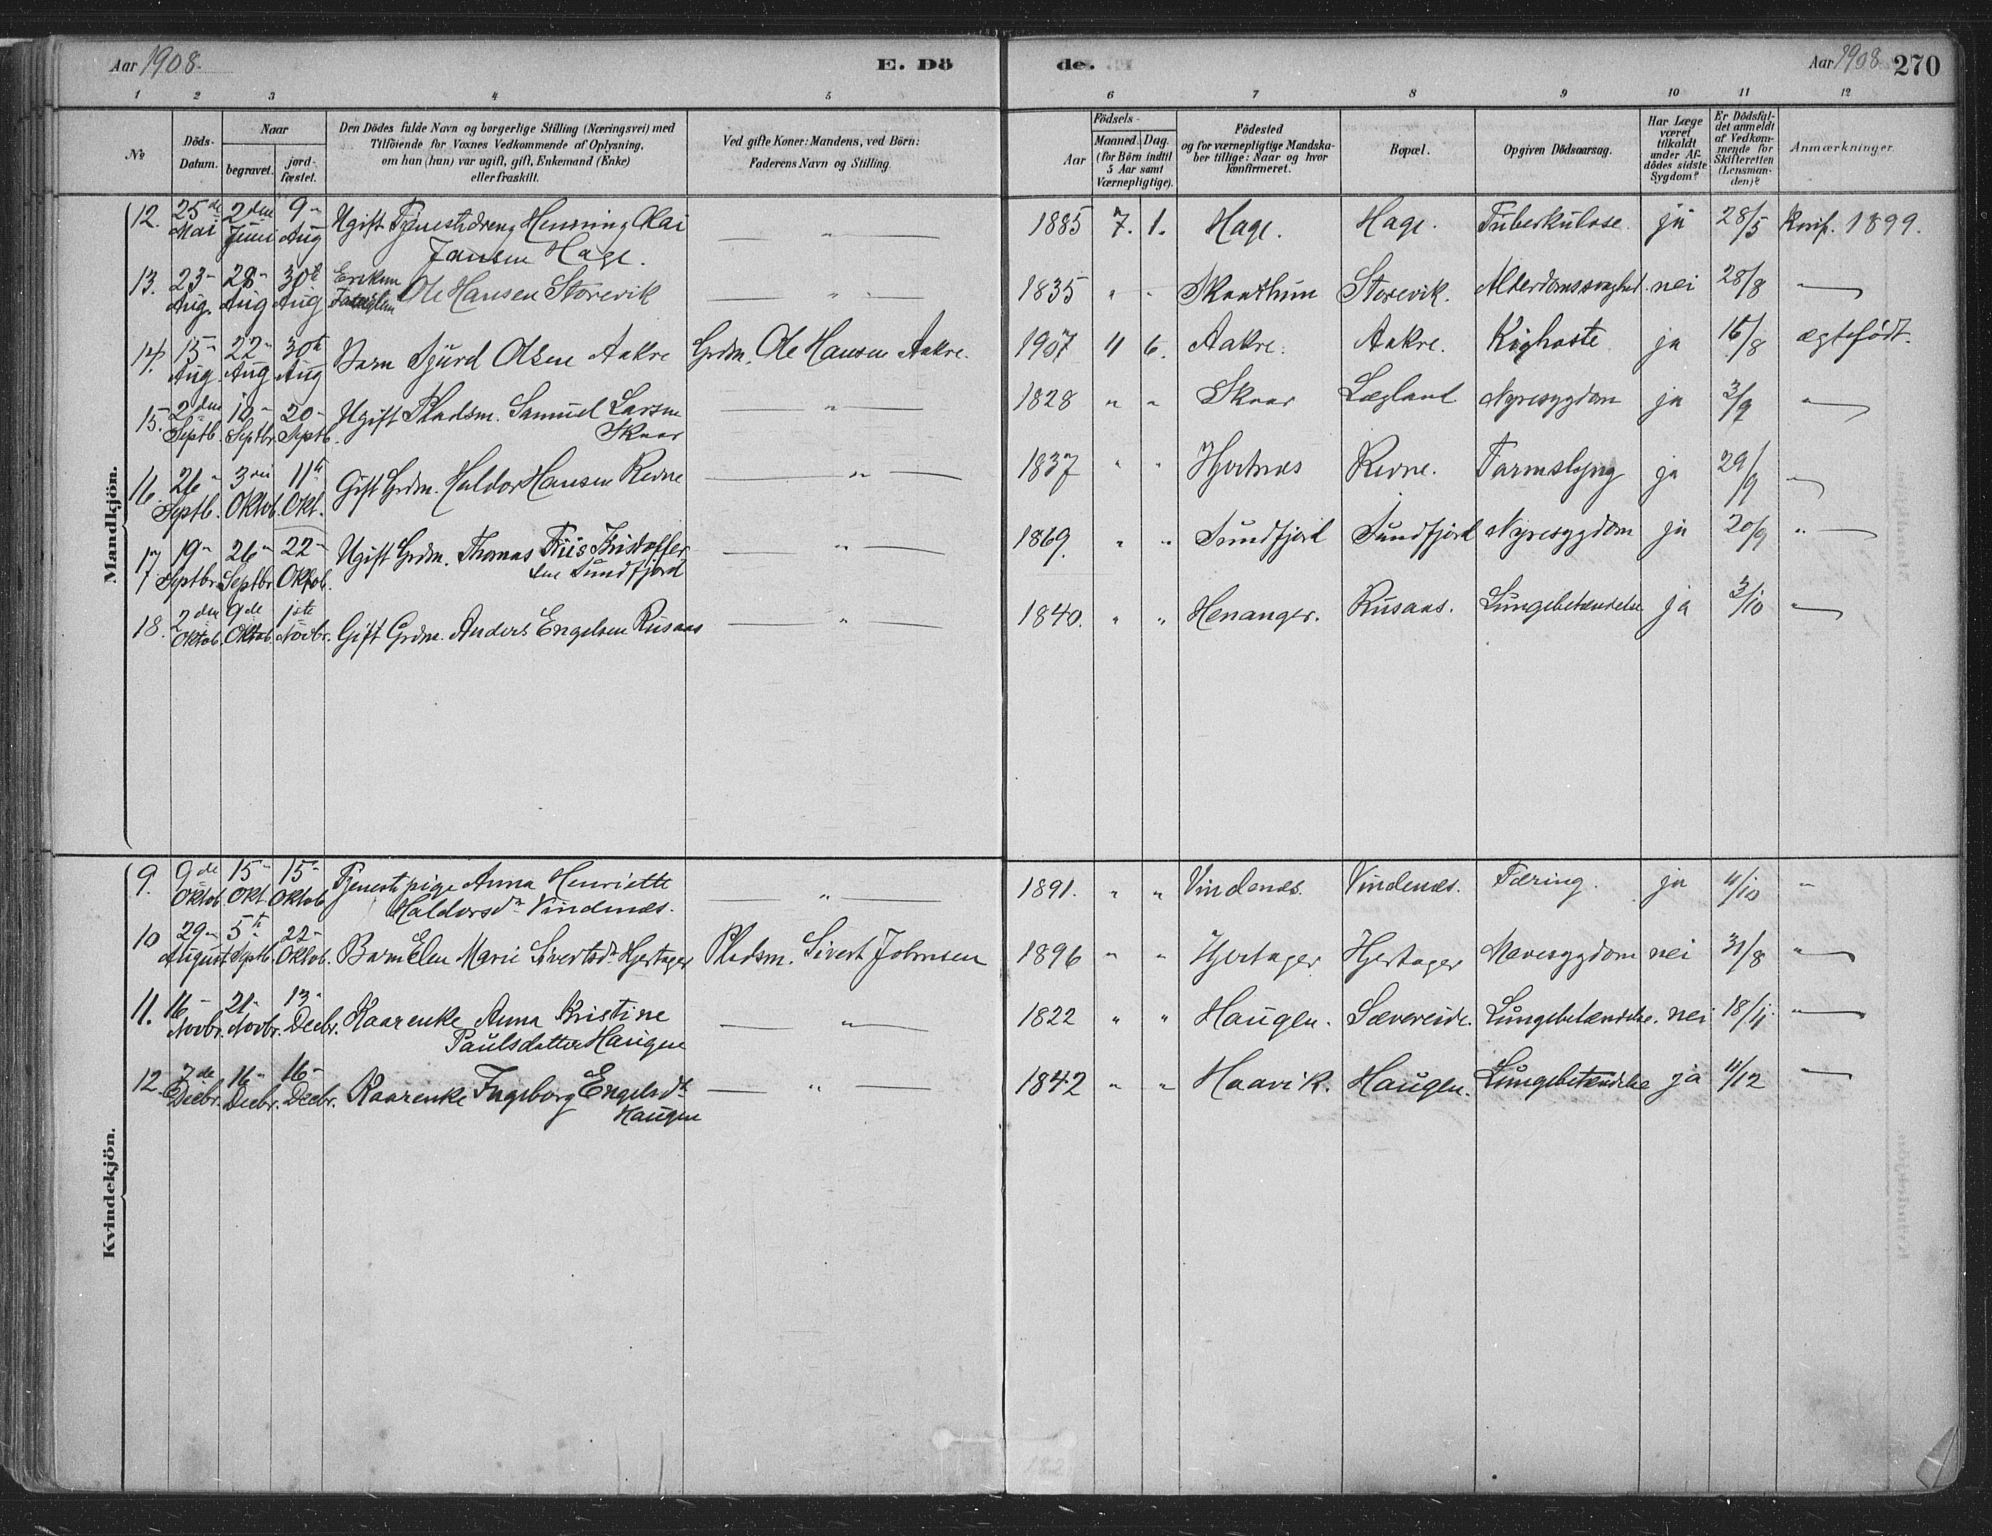 Aar 1908. E. Dö de. Aar 1908. 270
1 2 3 4 5 6 7 8 9 10 11 12
No Döds-Datum. Naar begravet. jordfæstet. Den Dödes fulde Navn og borgerlige Stilling (Næringsvei) med Tilföiende for Voxnes Vedkommende af Oplysning, om han (hun) var ugift, gift, Enkemand (Enke) eller fraskilt. Ved gifte Koner: Mandens, ved Börn: Faderens Navn og Stilling. Aar Födsels- Maaned. Dag. (for Börn indtil 5 Aar samt Værnepligtige). Födested og for værnepligtige Mandskaber tillige: Naar og hvor konfirmeret. Bopæl. Opgiven Dödsaarsag. Har Læge været tilkaldt under Afdödes sidste Sygdom? Er Dödsfaldet anmeldt af Vedkommende for Skifteretten (Lensmanden)? Anmærkninger.
Mandkjön.
12. 25de Mai 2den Juni 9- Aug Ugift Tjenestdreng Henning Olai Jansen Hage. — " — 1885 7. 1. Hage. Hage. Tuberkulose. ja 28/5 Konf. 1899.
13. 23- Aug. 28- Aug 30te Aug Ole Hansen Storevik — " — 1835 " - Skaathun Storevik. Alderdomssvaghed nei 28/8 "
14. 15- Aug. 22- Aug 30te Aug Barn Sjurd Olsen Aakre Grdm. Ole Hansen Aakre. 1907 11 6. Aakre. Aakre. Kighoste ja 15/8 ægtefödt.
15. 2den Septb. 10- Septbr. 20- Septb. Ugift Pladsm. Samuel Larsen Skaar — " — 1828 " " Skaar Lægland Nyresygdom ja 3/9 "
16. 26- Septb. 3die Oktob. 11te Okt. Gift Grdm. Haldor Hansen Revne — " — 1837 " " Hjertnæs Revne. Tarmslyng ja 29/9 "
17 19- Septbr. 26- Septbr. 22- Oktob. Ugift Grdm. Thomas Friis Kristoffersen Sundfjord — " — 1869. " " Sundfjord Sundfjord Nyresygdom ja 20/9 "
18. 2den Oktob. 9de Oktob. 1ste Novbr. Gift Grdm. Anders Engelsen Rusaas — " — 1840. " " Henanger. Rusaas. Lungebetændelse ja 3/10 "
Kvindekjön.
9. 9de Oktob. 15- Okt. 15- Oktob. Tjenestepige Anna Henriette Haldorsdr Vindenæs. — " — 1891. " " Vindenæs. Vindenæs. Tæring. ja 11/10 "
10 29- August 5te Septb. 22- Oktob. Barn Elen Marie Sivertsdr Hjertager Pladsm. Sivert Johnsen 1896 " " Hjertager Hjertager Mavesygdom nei 31/8 "
11. 16- Novbr. 21- Novbr. 13- Decbr. Kaarenke Anna Kristine Paulsdatter Haugen — " — 1822 " " Haugen. Sævereide. Lungebetændelse. nei 18/11 "
12. 7de Decbr. 16- Decbr. 16- Decbr. Kaarenke Ingeborg Engelsdr Haugen — " — 1842 " " Haavik. Haugen. Lungebetændelse ja 11/12 "